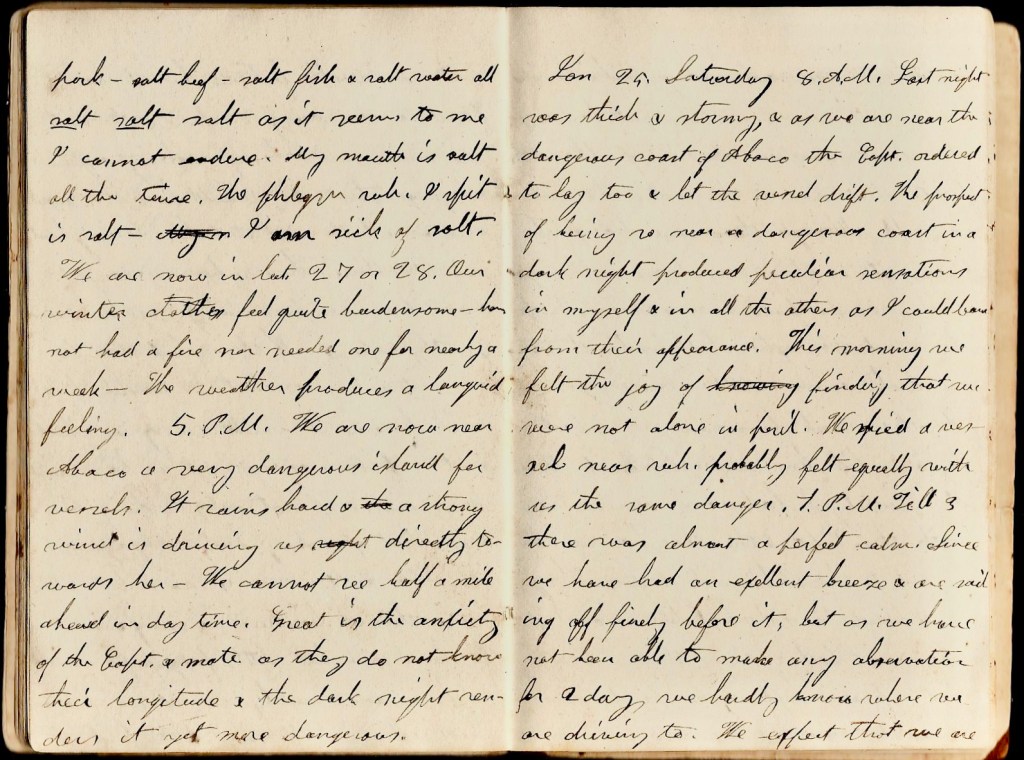 pork - salt beef - salt fish & salt water all
salt salt salt as it seems to me
I cannot endure. My mouth is salt
all the time. The phlegm wh. I spit
is salt - I am sick of salt.
We are now in lat. 27 or 28. Our
winter clothes feel quite burdensome - have
not had a fire nor needed one for nearly a
week - The weather produces a languid
feeling. 5. P.M. We are now near
Abaco a very dangerous island for
vessels. It rains hard & the a strong
wind is driving us right directly to-
wards her - We cannot see half a mile
ahead in day time. Great is the anxiety
of the Capt. & mate as they do not know
their longitude & the dark night ren-
ders it yet more dangerous.
Jan 25 Saturday 8. A.M. Last night
was thick & stormy, & as we are near the
dangerous coast of Abaco the Capt. ordered
to lay too & let the vessel drift. The prospect
of being so near a dangerous coast in a
dark night produced peculiar sensations
in myself & in all the others as I could learn
from their appearance. This morning we
felt the joy of knowing finding that we
were not alone in peril. We spied a ves-
sel near wh. probably felt equally with
us the same danger. 7. P.M. Till 3
there was almost a perfect calm. Since
we have had an exellent breeze & are sail
ing off finely before it; but as we have
not been able to make any observation
for 2 days we hardly know where we
are driving to. We expect that we are